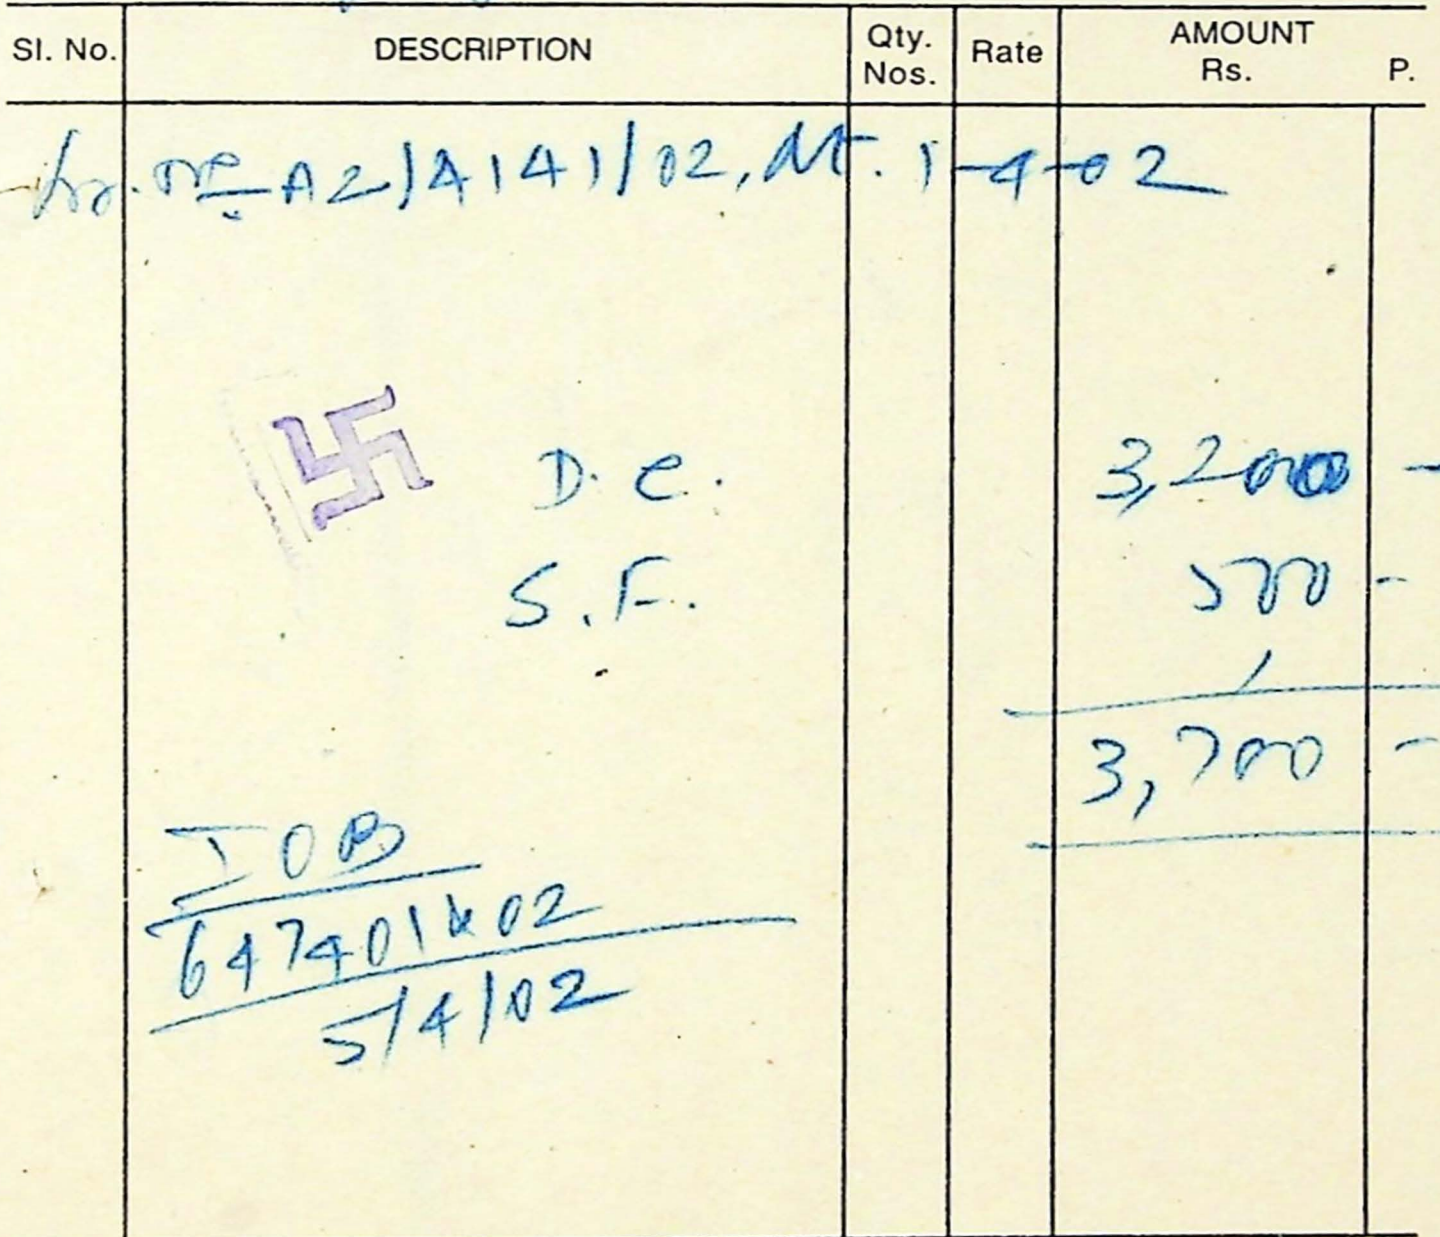 Sl. No. DESCRIPTION Qty. Nos. Rate AMOUNT Rs. P.
A2/4141/02, dt. 1-4-02
D. C. 3,200 -
S. F. 500 -
3,700 -
IOB
647401 & 02
5/4/02